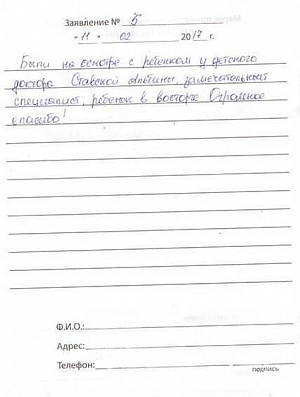 Заявление № 5
«11» 02 2017 г.
Были на осмотре с ребенком у детского
доктора Ставской Альбины, замечательный
специалист, ребенок в восторге Огромное
спасибо!
Ф.И.О.:
Адрес:
Телефон:
подпись